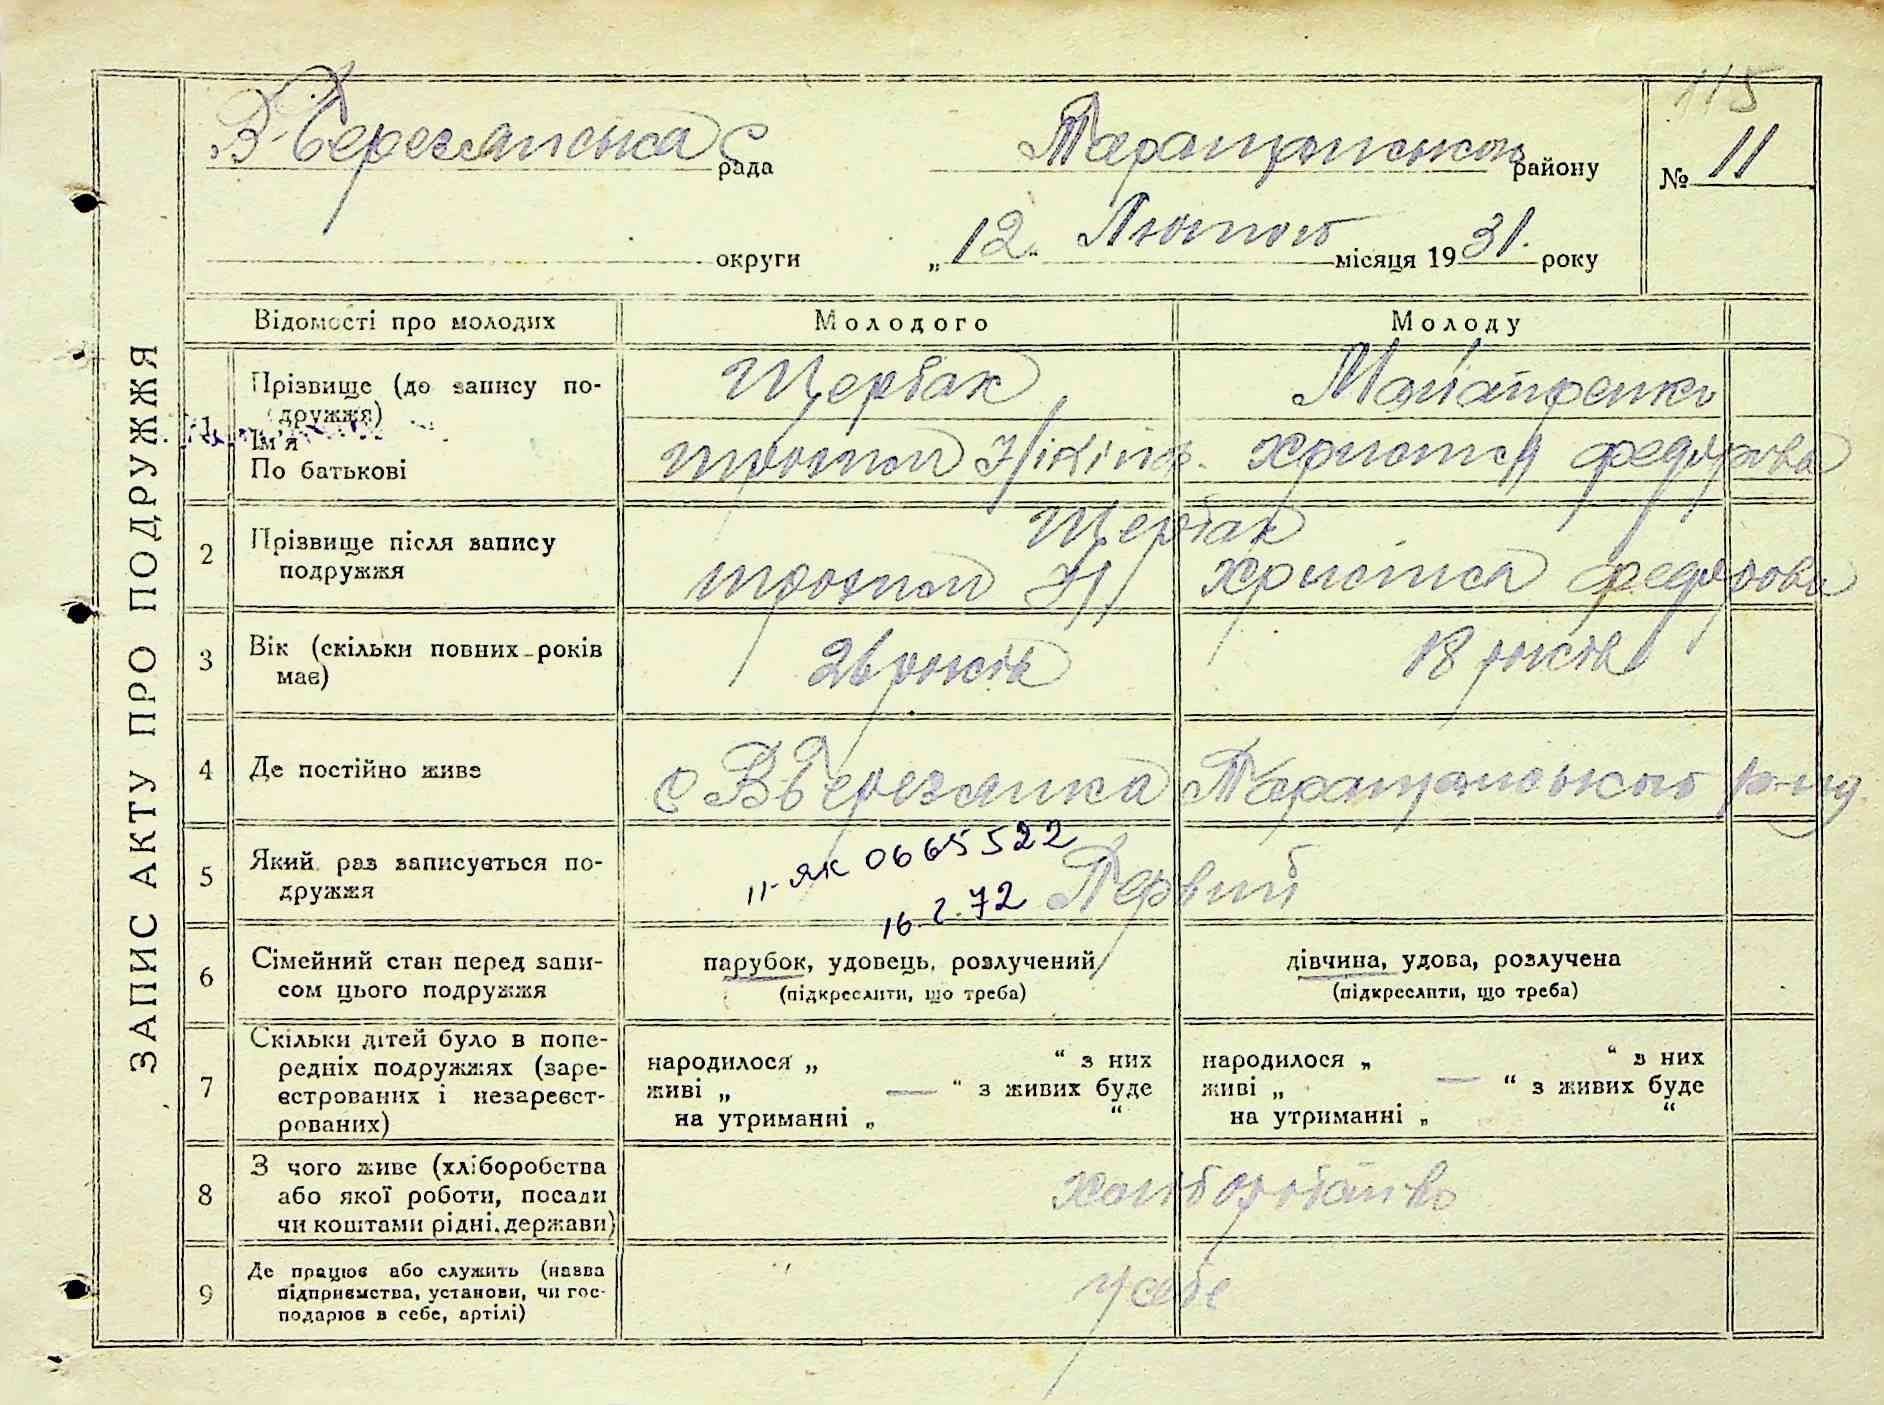 115
В-Березянська с рада Таращанського району № 11
округи „12“ Лютого місяця 1931. року
ЗАПИС АКТУ ПРО ПОДРУЖЖЯ
Відомості про молодих Молодого Молоду
1 Прізвище (до запису по-
дружжя) Щербак
Ім'я
По батькові Трохим Нікіпф. Христя Федорова
2 Прізвище після запису
подружжя Щербак
Трохим Н Христя Федорова
3 Вік (скільки повних років
має) 26 років 18 років
4 Де постійно живе с В-Березянка Таращанського р-ну.
5 Який раз записується по-
дружжя Первий
II-ЯК 0665522
16.2.72
6 Сімейний стан перед запи-
сом цього подружжя
парубок, удовець, розлучений
(підкреслити, що треба)
дівчина, удова, розлучена
(підкреслити, що треба)
7 Скільки дітей було в попе-
редніх подружжях (заре-
єстрованих і незареєст-
рованих)
народилося „ “ з них
живі „ — “ з живих буде
на утриманні „ “
народилося „ “ з них
живі „ — “ з живих буде
на утриманні „ “
8 З чого живе (хліборобства
або якої роботи, посади
чи коштами рідні, держави)
хліборобство
9 Де працює або служить (назва
підприємства, установи, чи гос-
подарює в себе, артілі)
у себе